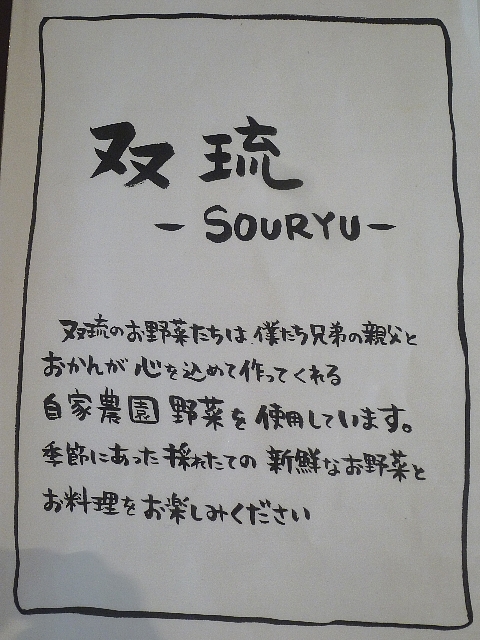 双琉
-SOURYU-
双琉のお野菜たちは 僕たち兄弟の親父と
おかんが 心を込めて作ってくれる
自家農園 野菜を使用しています。
季節にあった採れたての 新鮮なお野菜と
お料理をお楽しみください